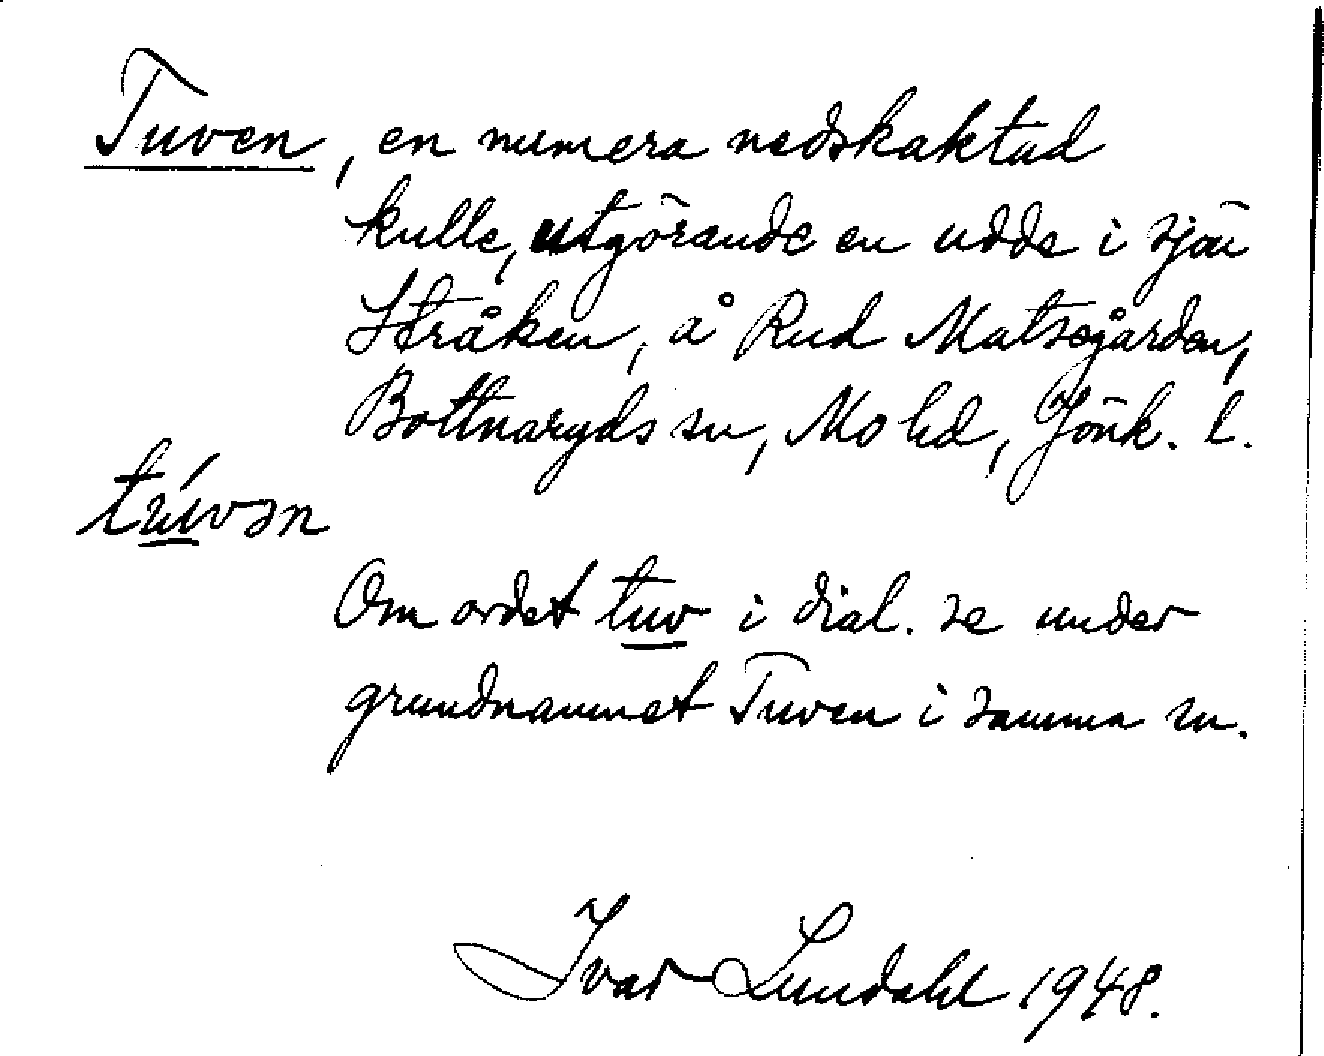 Tuven, en numera nedskaktad
kulle, utgörande en udde i sjön
Stråken, å Rud Matsegården,
Bottnaryds sn, Mo hd, Jönk. l.
Om ordet tuv i dial. se under
grundnamnet Tuven i samma sn.
Ivar Lundahl 1948.